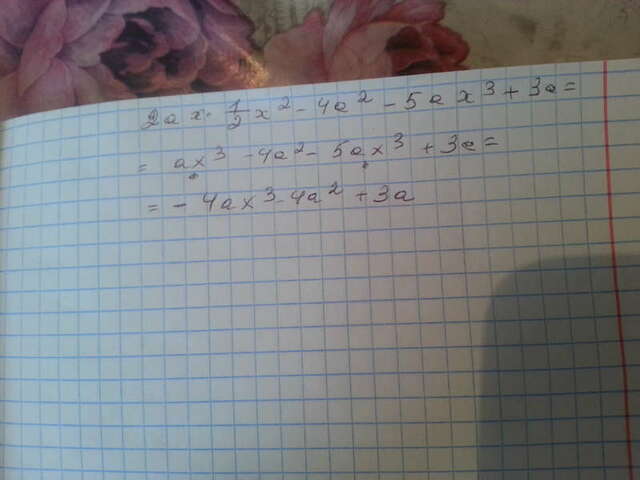 2ax · 1/2 x² - 4a² - 5ax³ + 3a =
= ax³ - 4a² - 5ax³ + 3a =
= - 4ax³ - 4a² + 3a